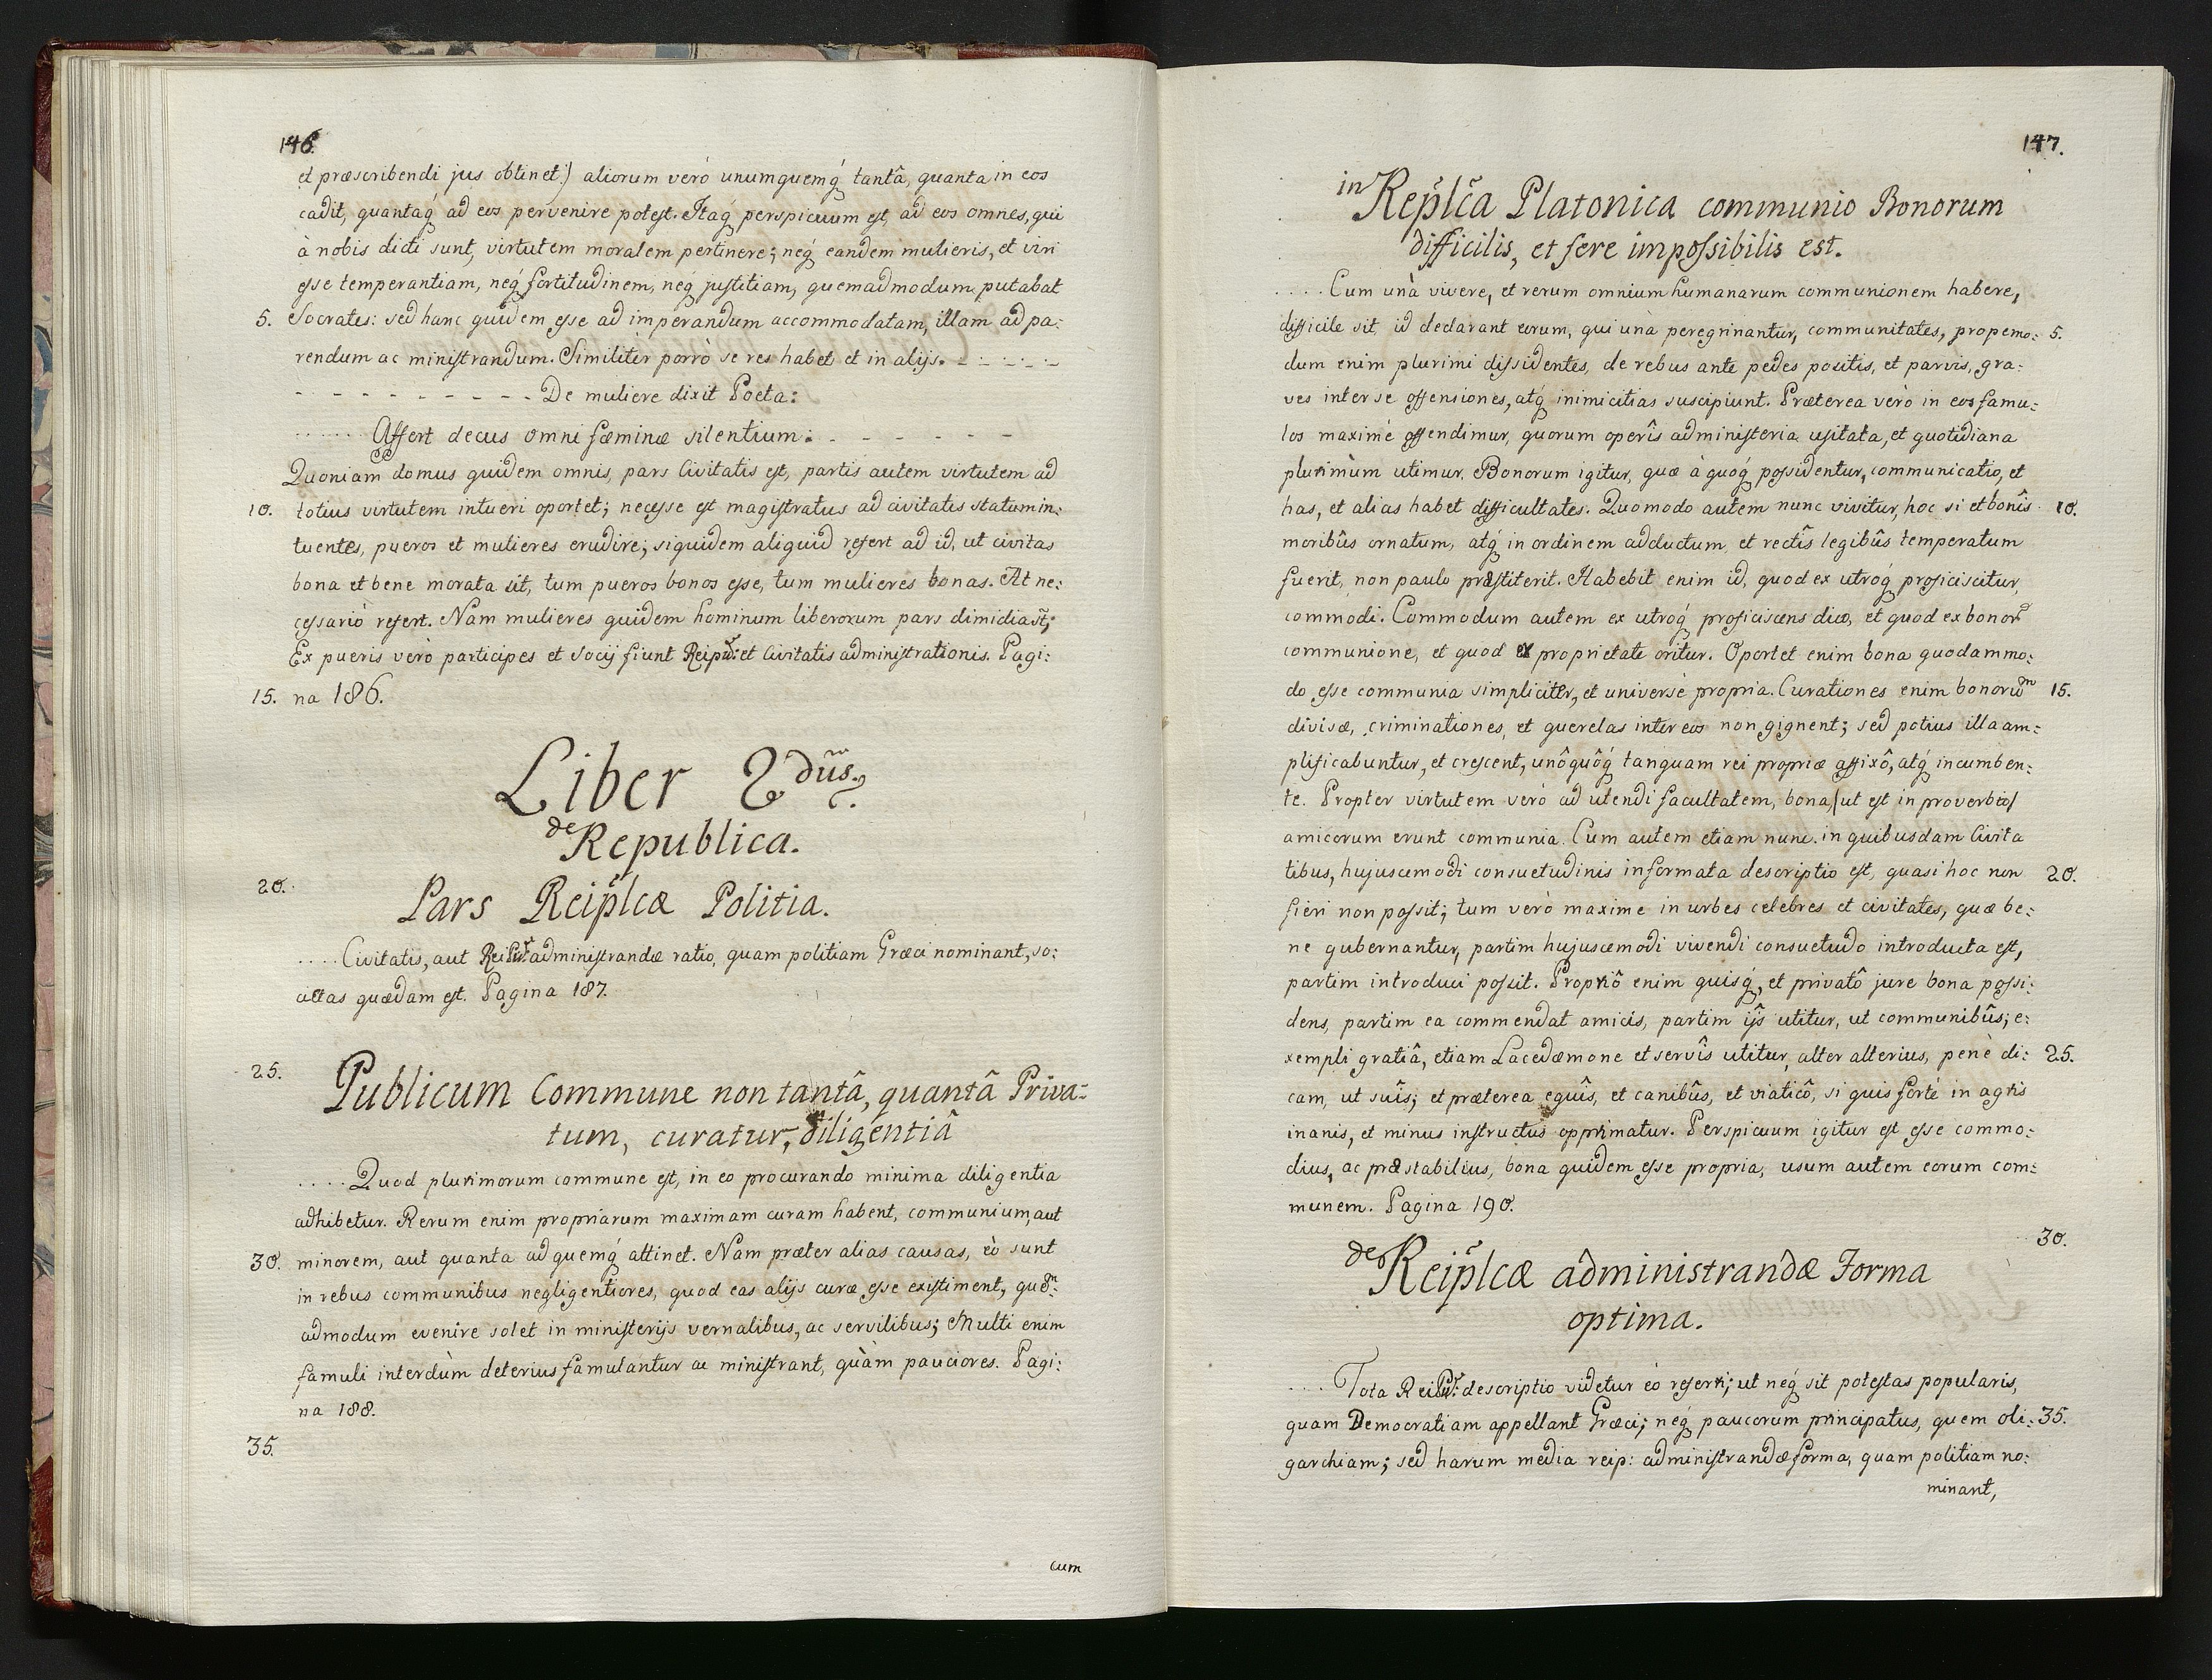 146.
et præscribendi jus obtinet:) aliorum verò unumquemq́ tantâ, quanta in eos
cadit, quantaq́ ad eos pervenire potest. Itaq́ perspicuum est, ad eos omnes, qui
à nobis dicti sunt, virtutem moralem pertinere; neq́ eandem mulieris, et viri
esse temperantiam, neq́ fortitudinem, neq́ justitiam, quemadmodum putabat
5. Socrates: sed hanc quidem esse ad imperandum accommodatam, illam ad pa:
rendum ac ministrandum. Similiter porrò se res habet et in alijs. - - - - - -
- - - - - - - - - - De muliere dixit Poeta:
...... Affert decus omni fæminæ silentium: - - - - - -
Quoniam domus quidem omnis, pars Civitatis est, partis autem virtutem ad
10. totius virtutem intueri oportet; necesse est magistratus ad civitatis statum in:
tuentes, pueros et mulieres erudire; siquidem aliquid refert ad id, ut civitas
bona et bene morata sit, tum pueros bonos esse, tum mulieres bonas. At ne:
cessariò refert. Nam mulieres quidem hominum liberorum pars dimidia st̃;
Ex pueris verò participes et socij fiunt Reipub: et Civitatis administrationis. Pagi:
15. na 186.
Liber 2dũs.
de Republica.
20.
Pars Reip̃lcæ Politia.
.... Civitatis, aut Reipub: administrandæ ratio, quam politiam Græci nominant, so:
cietas quædam est. Pagina 187.
25.
Publicum Commune non tantâ, quantâ Priva:
tum, curatur, diligentiâ
.... Quod plurimorum commune est, in eo procurando minima diligentia
adhibetur. Rerum enim propriarum maximam curam habent, communium, aut
30. minorem, aut quanta ad quemq́ attinet. Nam præter alias causas, eò sunt
in rebus communibus negligentiores, quod eas alijs curæ esse existiment, quem:
admodum evenire solet in ministerijs vernalibus, ac servilibus; Multi enim
famuli interdùm deterius famulantur ac ministrant, quàm pauciores. Pagi:
na 188.
35.
cum
147.
in Rep̃lc̃a Platonica communio Bonorum
difficilis, et fere impossibilis est.
.... Cum unà vivere, et rerum omnium humanarum communionem habere,
difficile sit, id declarant eorum, qui unà peregrinantur, communitates, propemo: 5.
dum enim plurimi dissidentes, de rebus ante pedes positis, et parvis, gra:
ves inter se offensiones, atq́ inimicitias suscipiunt. Præterea verò in eos famu:
los maximè offendimur, quorum operîs administeria usitata, et quotidiana
plurimùm utimur. Bonorum igitur, quæ à quoq́ possidentur, communicatio, et
has, et alias habet difficultates. Quomodo autem nunc vivitur, hoc si et bonîs 10.
moribûs ornatum, atq́ in ordinem adductum, et rectîs legibûs temperatum
fuerit, non paulo præstiterit. Habebit enim id, quod ex utroq́ proficiscitur,
commodi. Commodum autem ex utroq́ proficiscens dico, et quod ex bonor
communione, et quod ex proprietate oritur. Oportet enim bona quodammo:
do esse communia simpliciter, et universè propria. Curationes enim bonorum 15.
divisæ, criminationes, et querelas inter eos non gignent; sed potius illa am:
plificabuntur, et crescent, unôquôq́ tanquam rei propriæ affixô, atq́ incumben:
te. Propter virtutem verò ad utendi facultatem, bona, /ut est in proverbio/
amicorum erunt communia. Cum autem etiam nunc in quibusdam Civita
tibus, hujuscemodi consuetudinis informata descriptio est, quasi hoc non 20.
fieri non possit; tum verò maxime in urbes celebres et civitates, quæ be:
ne gubernantur, partim hujuscemodi vivendi consuetudo introducta est,
partim introduci possit. Propriô enim quisq́, et privatô jure bona possi:
dens, partim ea commendat amicis, partim ijs utitur, ut communibûs; e:
xempli gratiâ, etiam Lacedæmone et servîs utitur, alter alterius, penè di: 25.
cam, ut suîs; et præterea equîs, et canibûs, et viaticô, si quis fortè in agris
inanis, et minus instructus opprimatur. Perspicuum igitur est esse commo:
dius, ac præstabilius, bona quidem esse propria, usum autem eorum com:
munem. Pagina 190.
30.
de Reip̃lcæ administrandæ Forma
optima.
.... Tota Reipub: descriptio videtur eò referri; ut neq́ sit potestas popularis,
quam Democratiam appellant Græci; neq́ paucorum principatus, quem oli: 35.
garchiam; sed harum media reip: administrandæ forma, quam politiam no:
minant,